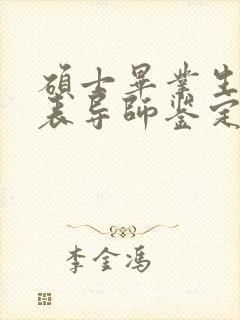 碩士畢業生
表导師鉴定
李金馮